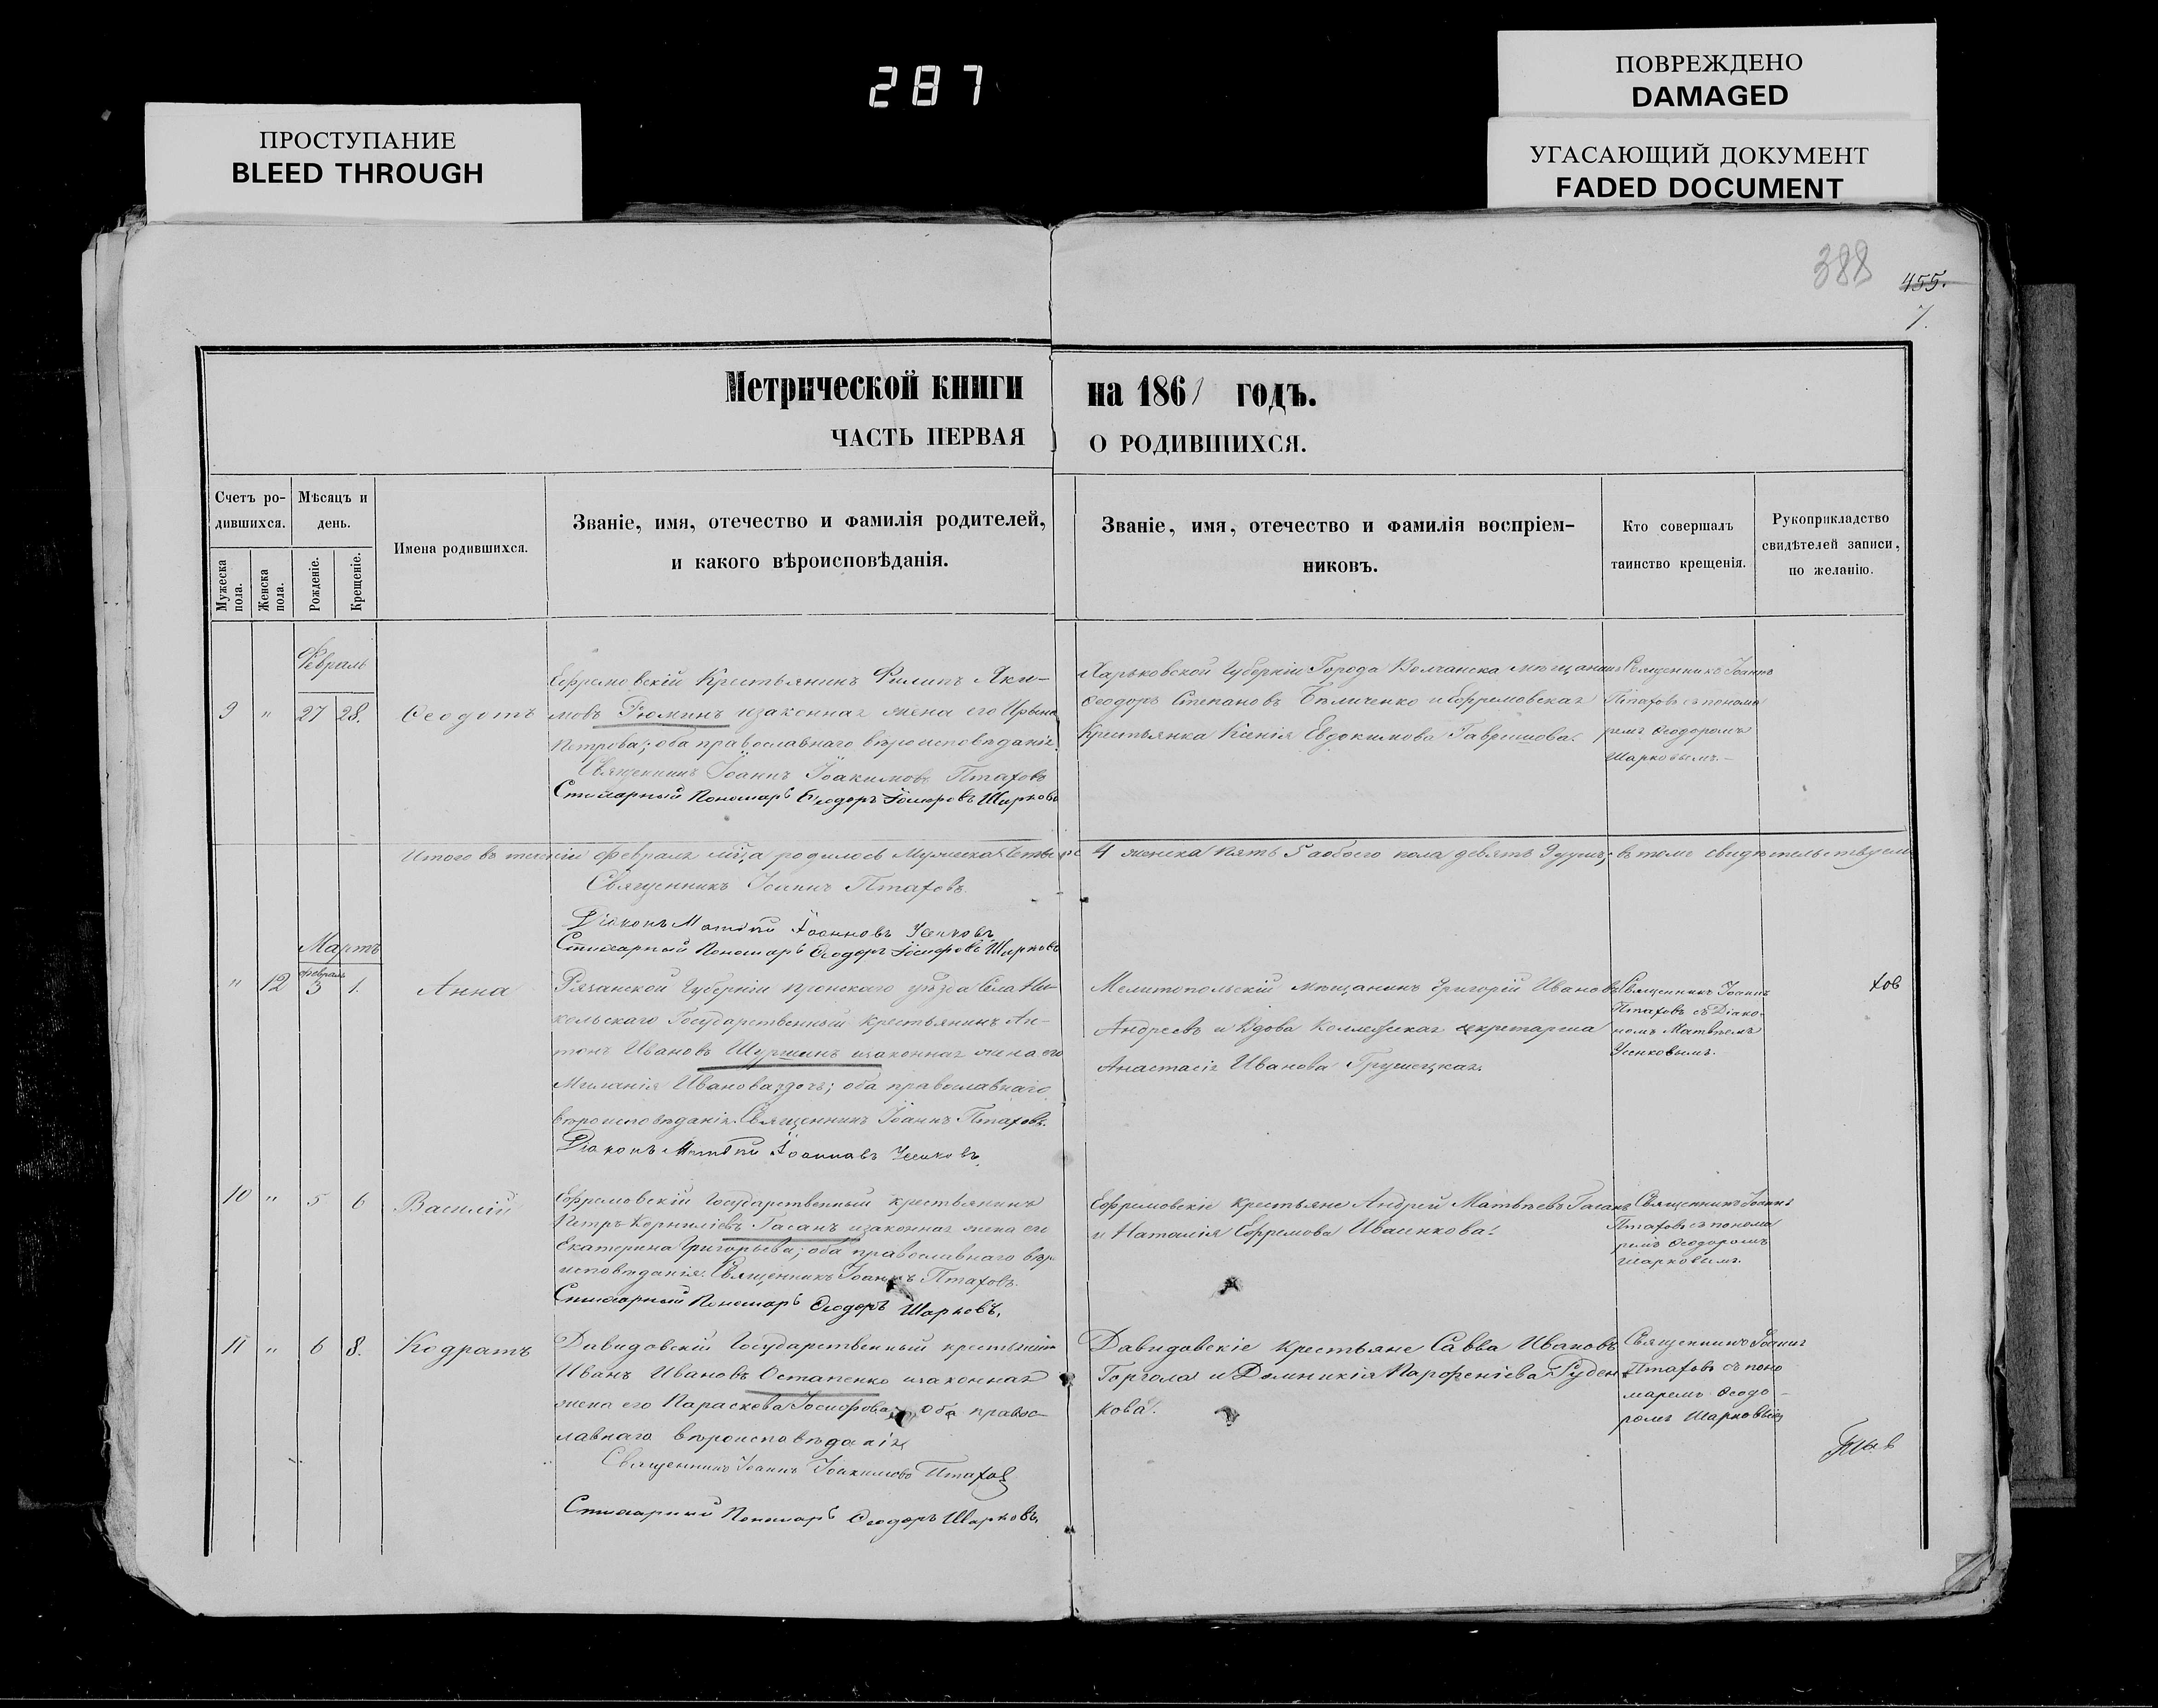 287
ПРОСТУПАНИЕ
BLEED THROUGH
ПОВРЕЖДЕНО
DAMAGED
УГАСАЮЩИЙ ДОКУМЕНТ
FADED DOCUMENT
388
455.
7.
Метрической книги на 1861 годъ.
ЧАСТЬ ПЕРВАЯ О РОДИВШИХСЯ.
Счетъ ро-
дившихся.
Мужеска пола.
Женска пола.
Мѣсяцъ и
день.
Рожденіе.
Крещеніе.
Имена родившихся.
Званіе, имя, отечество и фамилія родителей,
и какого вѣроисповѣданія.
Званіе, имя, отечество и фамилія воспріем-
никовъ.
Кто совершалъ
таинство крещенія.
Рукоприкладство
свидѣтелей записи,
по желанію.
Февраль
9 " 27 28. Ѳеодотъ
Ефремовскій Крестьянинъ Филипъ Яки-
мовъ Рюминъ изаконная жена его
Петрова; оба православнаго вѣроисповѣданія.
Священникъ Іоаннъ Іоакимовъ Птаховъ
Стихарный Пономарь Ѳеодоръ Іосифовъ Шарковъ
Харьковской Губерніи Города Волчанска мѣщанинъ
Ѳеодоръ Степановъ Бѣличенко и Ефремовская
Крестьянка Ксенія Евдокимова Гавришова.
Священникъ Іоаннъ
Птаховъ съ понома
ремъ Ѳеодоромъ
Шарковымъ.
Итого въ теченіи Февраля мѣца родилось Мужеска четыре 4 женска пять 5 аобоего пола девять 9 душъ; въ томъ свидѣтельствуемъ
Священникъ Іоаннъ Птаховъ.
Діаконъ Матѳій Іоанновъ Усенковъ
Стихарный Пономарь Ѳеодоръ Іосифовъ Шарковъ
Мартъ
Февраль
" 12 3 1. Анна
Рязанской Губерніи Пронскаго уѣзда Села Ни-
кольскаго Государственный крестьянинъ Ан-
тонъ Ивановъ Шуршинъ изаконная жена его
Миланія Ивановадочь; оба православнаго
вѣроисповѣданія. Священникъ Іоаннъ Птаховъ.
Діаконъ Матѳій Іоанновъ Усенковъ
Мелитопольскій мѣщанинъ Григорій Ивановъ
Андреевъ и Вдова Коллежская секретарша
Анастасія Иванова Грушецкая.
Священникъ Іоаннъ
Птаховъ съ Діако-
номъ Матвѣемъ
Усенковымъ.
ховъ
10 " 5 6 Василій
Ефремовскій государственный крестьянинъ
Петръ Корниліевъ Гасанъ изаконная жена его
Екатерина Григорьева; оба православнаго вѣро
исповѣданія. Священникъ Іоаннъ Птаховъ.
Стихарный Пономарь Ѳеодоръ Шарковъ.
Ефремовскіе крестьяне Андрей Матвѣевъ Гасанъ
и Наталія Ефремова Ивасенкова.
Священникъ Іоаннъ
Птаховъ съ понома
ремъ Ѳеодоромъ
Шарковымъ.
11 " 6 8. Кодратъ
Давидовскій Государственный крестьянинъ
Иванъ Ивановъ Остапенко изаконная
жена его Параскева Іосифова; оба правос-
лавнаго вѣроисповѣданія
Священникъ Іоаннъ Іоакимовъ Птаховъ
Стихарный Пономарь Ѳеодоръ Шарковъ.
Давидовскіе крестьяне Савва Ивановъ
Горгола и Домникія Парфеніева Руден-
кова.
Священникъ Іоаннъ
Птаховъ съ поно
маремъ Ѳеодо-
ромъ Шарковымъ